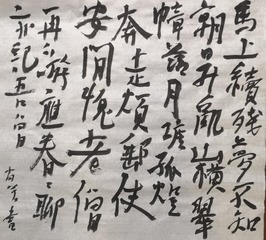 馬上續殘夢不知
朝日升亂山橫翠
幛落月澹孤燈
奔走煩郵使
安閒愧老僧
再游應眷々聊
亦記吾曾
書